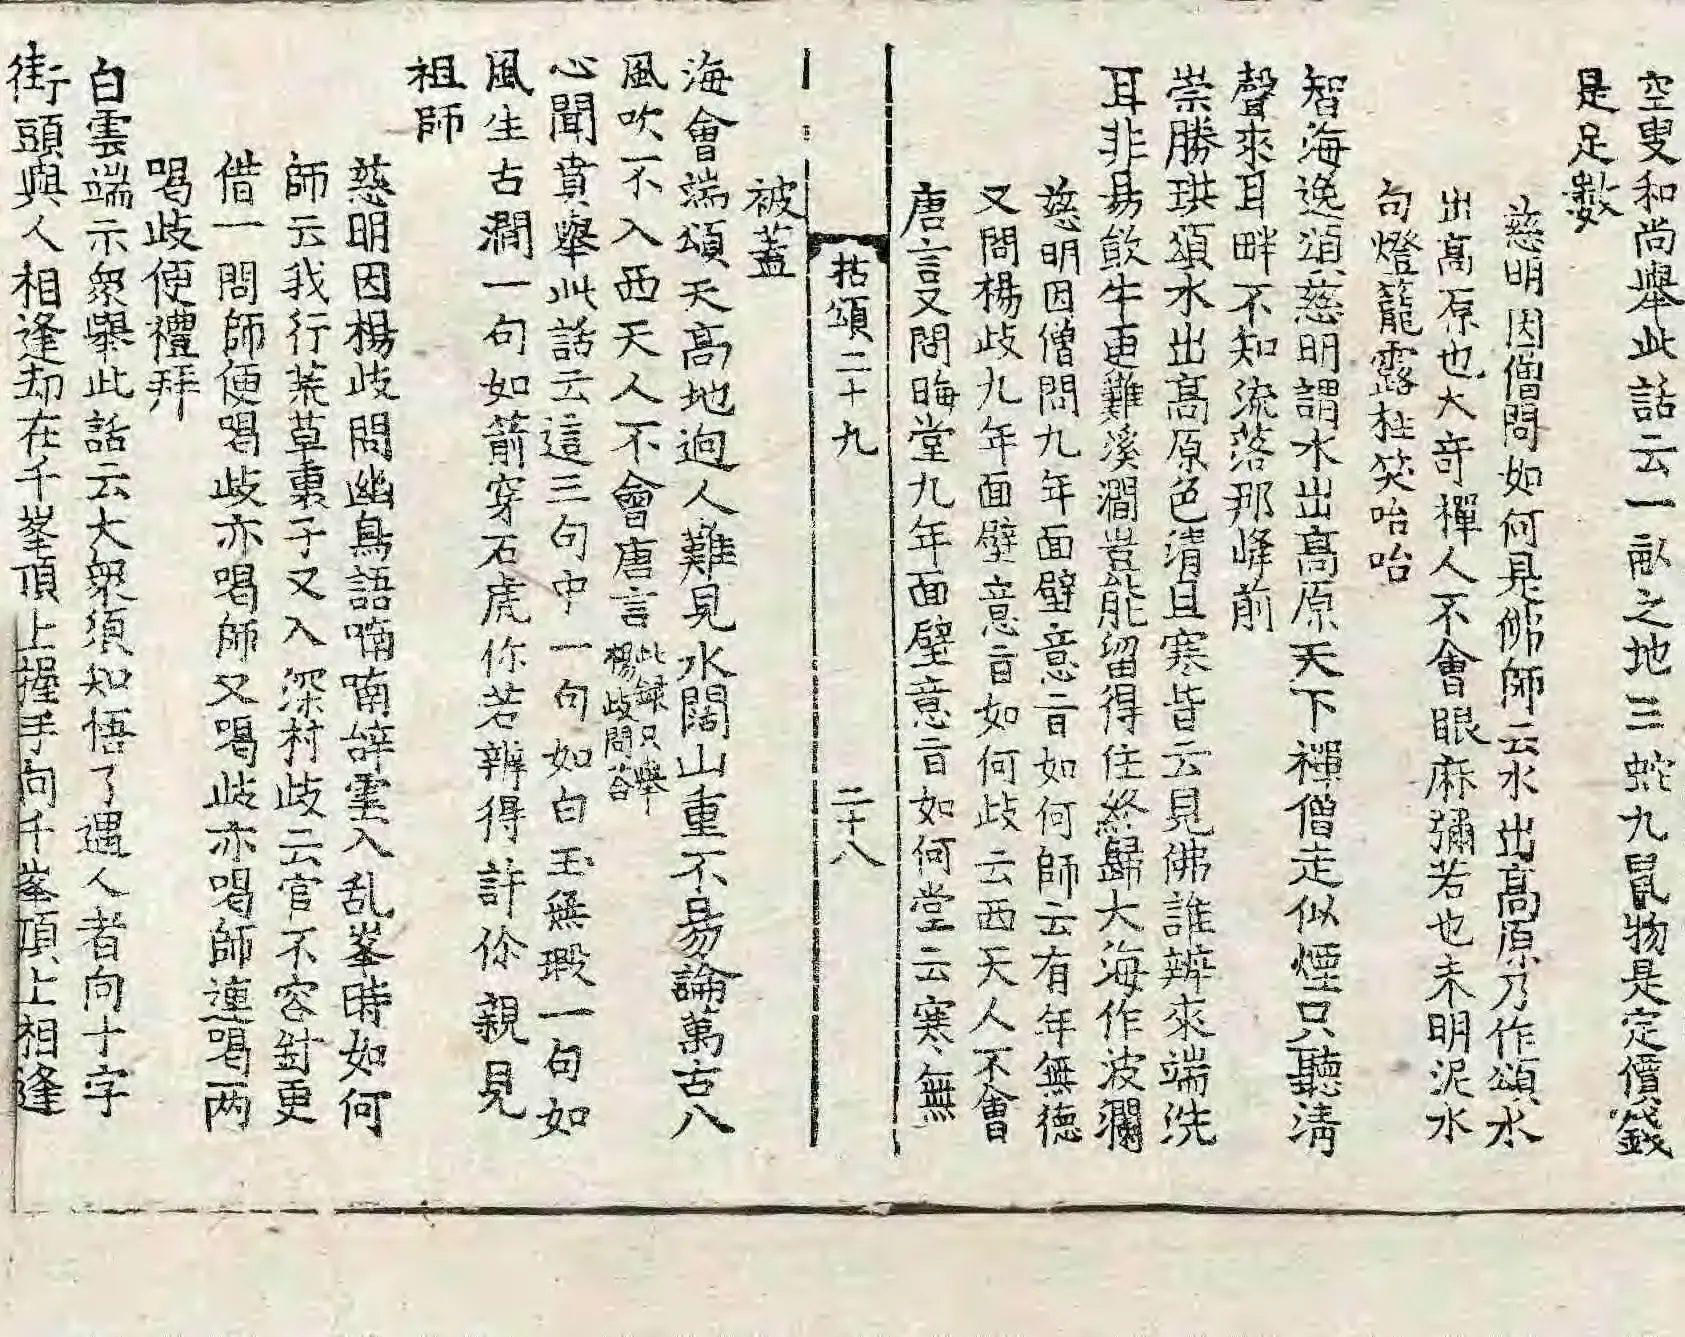 空叟和尚舉此話云一畝之地三蛇九鼠物是定價錢
是足數
慈明因僧問如何是佛師云水出高原乃作頌水
出高原也大奇禪人不會眼麻彌若也未明泥水
句燈籠露柱笑咍咍
智海逸頌慈明謂水出高原天下禪僧走似煙只聽清
聲來耳畔不知流落那峰前
崇勝珙頌水出高原色清且寒皆云見佛誰辨來端洗
耳非易飮牛更難溪澗豈能留得住終歸大海作波瀾
慈明因僧問九年面壁意旨如何師云有年無德
又問楊歧九年面壁意旨如何歧云西天人不會
唐言又問晦堂九年面壁意旨如何堂云寒無
拈頌二十九 二十八
被蓋
海會端頌天高地迥人難見水闊山重不易論萬古八
風吹不入西天人不會唐言此錄只舉楊歧問答
心聞賁舉此話云這三句中一句如白玉無瑕一句如
風生古澗一句如箭穿石虎你若辨得許你親見
祖師
慈明因楊歧問幽鳥語喃喃辭雲入乱峯時如何
師云我行荒草裏子又入深村歧云官不容針更
借一問師便喝歧亦喝師又喝歧亦喝師連喝两
喝歧便禮拜
白雲端示衆舉此話云大衆須知悟了遇人者向十字
街頭與人相逢却在千峯頂上握手向千峯頂上相逢